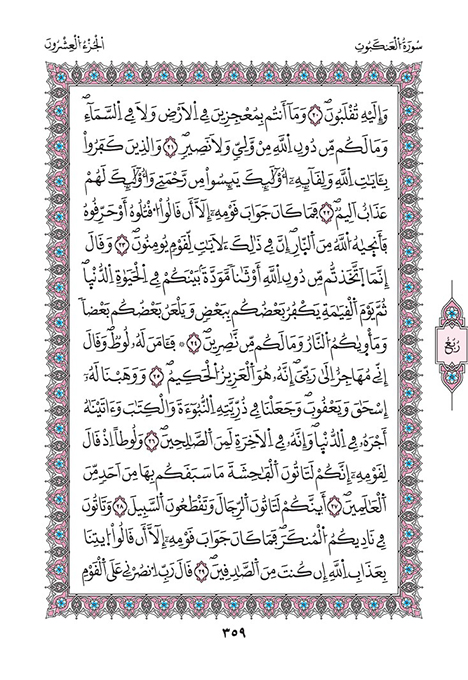 سُورَةُ الْعَنكَبُوتِ
الْجُزْءُ الْعِشْرُونَ
وَإِلَيْهِ تُقْلَبُونَۖ ٢٠ وَمَآ أَنتُم بِمُعْجِزِينَ فِي اِ۬لْأَرْضِ وَلَا فِي اِ۬لسَّمَآءِۖ
وَمَا لَكُم مِّن دُونِ اِ۬للَّهِ مِنْ وَّلِيّٖ وَلَا نَصِيرٖۖ ٢١ وَالذِينَ كَفَرُواْ
بِـَٔايَٰتِ اِ۬للَّهِ وَلِقَآئِهِۦٓ أُوْلَٰٓئِكَ يَئِسُواْ مِن رَّحْمَتِے وَأُوْلَٰٓئِكَ لَهُمْ
عَذَابٌ أَلِيمٞۖ ٢٢ فَمَا كَانَ جَوَابَ قَوْمِهِۦٓ إِلَّآ أَن قَالُواْ اُ۟قْتُلُوهُ أَوْ حَرِّقُوهُ
فَأَنج۪يٰهُ اُ۬للَّهُ مِنَ اَ۬لنّ۪ارِۖ إِنَّ فِے ذَٰلِكَ لَأٓيَٰتٖ لِّقَوْمٖ يُومِنُونَۖ ٢٣ وَقَالَ
إِنَّمَا اَ۪تَّخَذتُّم مِّن دُونِ اِ۬للَّهِ أَوْثَٰناٗ مَّوَدَّةَۢ بَيْنَكُمْ فِي اِ۬لْحَيَوٰةِ اِ۬لدُّنْي۪اۖ
ثُمَّ يَوْمَ اَ۬لْقِيَٰمَةِ يَكْفُرُ بَعْضُكُم بِبَعْضٖ وَيَلْعَنُ بَعْضُكُم بَعْضاٗ
وَمَأْو۪يٰكُمُ اُ۬لنَّارُ وَمَا لَكُم مِّن نَّٰصِرِينَۖ ٢٤ ۞ فَـَٔامَنَ لَهُۥ لُوطٞۖ وَقَالَ
إِنِّے مُهَاجِرٌ اِلَىٰ رَبِّيَۖ إِنَّهُۥ هُوَ اَ۬لْعَزِيزُ اُ۬لْحَكِيمُۖ ٢٥ وَوَهَبْنَا لَهُۥٓ
إِسْحَٰقَ وَيَعْقُوبَۖ وَجَعَلْنَا فِے ذُرِّيَّتِهِ اِ۬لنُّبُوٓءَةَ وَالْكِتَٰبَۖ وَءَاتَيْنَٰهُ
أَجْرَهُۥ فِي اِ۬لدُّنْي۪اۖ وَإِنَّهُۥ فِي اِ۬لْأٓخِرَةِ لَمِنَ اَ۬لصَّٰلِحِينَۖ ٢٦ وَلُوطاً اِذْ قَالَ
لِقَوْمِهِۦٓ إِنَّكُمْ لَتَاتُونَ اَ۬لْفَٰحِشَةَ مَا سَبَقَكُم بِهَا مِنَ اَحَدٖ مِّنَ
اَ۬لْعَٰلَمِينَۖ ٢٧ أَئِنَّكُمْ لَتَاتُونَ اَ۬لرِّجَالَ وَتَقْطَعُونَ اَ۬لسَّبِيلَ ٢٨ وَتَاتُونَ
فِے نَادِيكُمُ اُ۬لْمُنكَرَۖ فَمَا كَانَ جَوَابَ قَوْمِهِۦٓ إِلَّآ أَن قَالُواْ اُ۟يتِنَا
بِعَذَابِ اِ۬للَّهِ إِن كُنتَ مِنَ اَ۬لصَّٰدِقِينَۖ ٢٩ قَالَ رَبِّ اِ۟نصُرْنِے عَلَى اَ۬لْقَوْمِ
رُبُع
٣٥٩